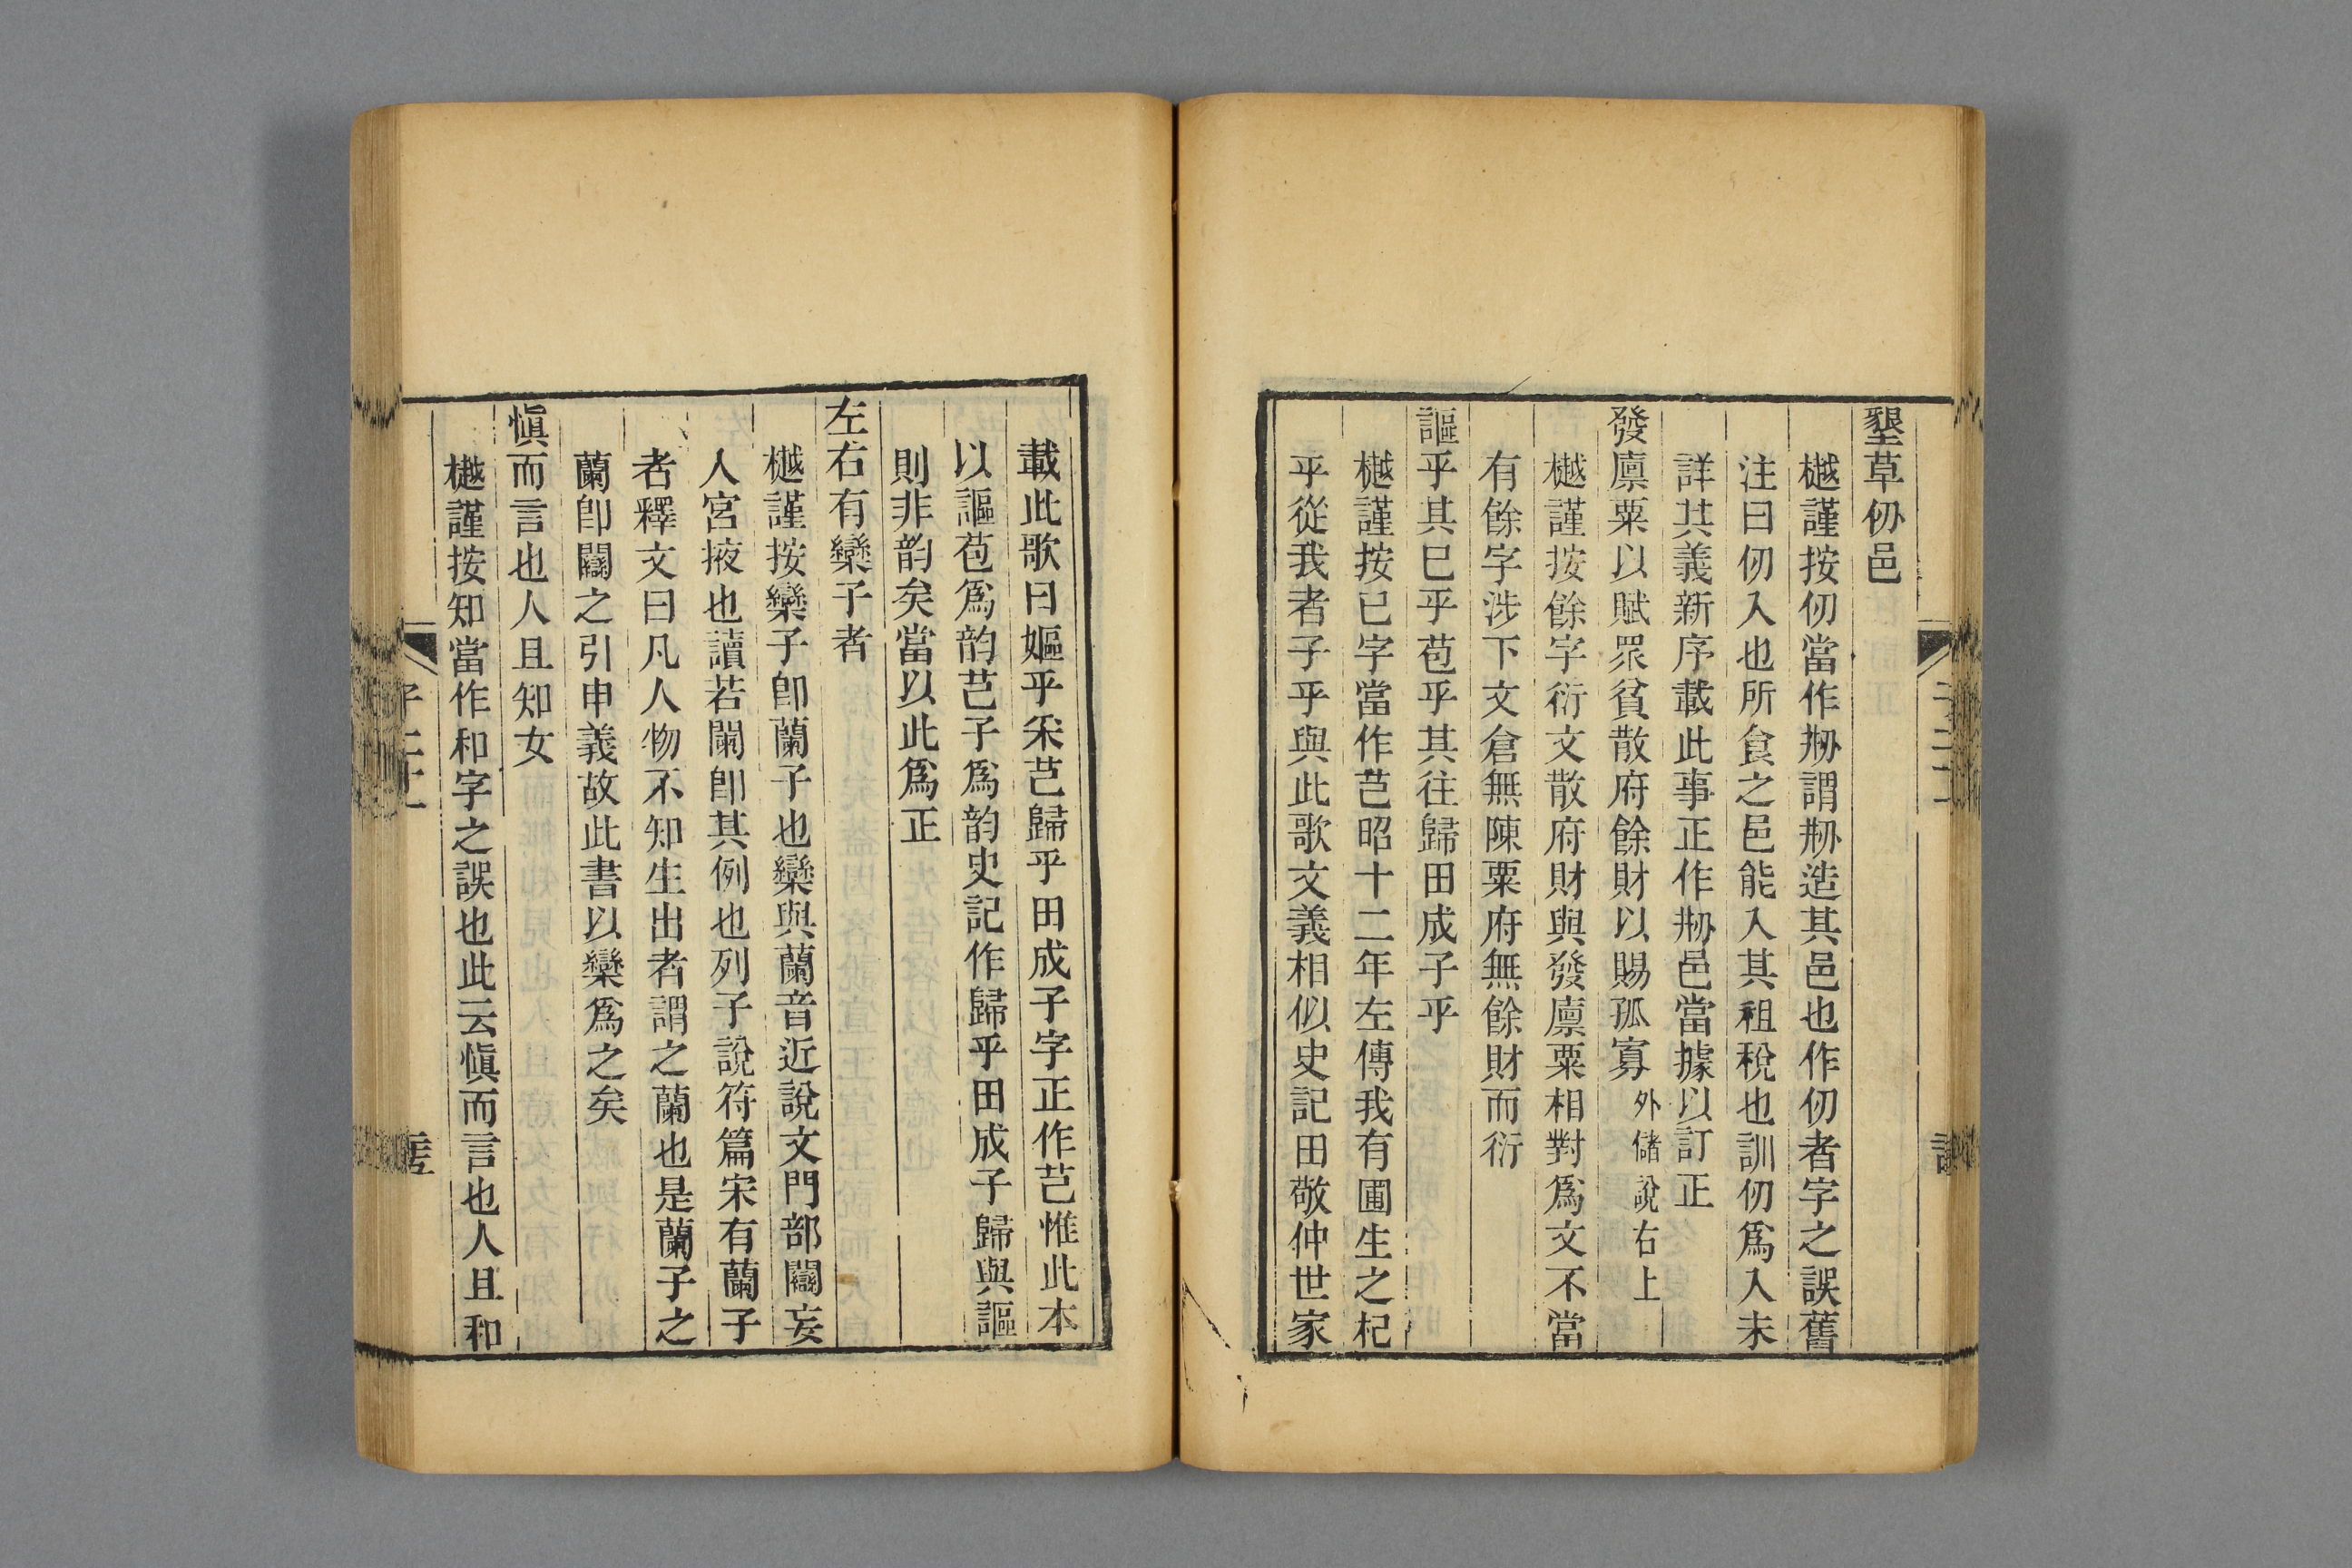 墾草仞邑
樾謹按仞當作剏謂剏造其邑也作仞者字之誤舊
注曰仞入也所食之邑能入其租稅也訓仞爲入未
詳其義新序載此事正作剏邑當據以訂正
發廩粟以賦眾貧散府餘財以賜孤寡 外儲說右上
樾謹按餘字衍文散府財與發廩粟相對爲文不當
有餘字涉下文倉無陳粟府無餘財而衍
謳乎其巳乎苞乎其往歸田成子乎
樾謹按已字當作芑昭十二年左傳我有圃生之杞
乎從我者子乎與此歌文義相似史記田敬仲世家
載此歌曰嫗乎采芑歸乎田成子字正作芑惟此本
以謳苞爲韵芑子爲韵史記作歸乎田成子歸與謳
則非韵矣當以此爲正
左右有欒子者
樾謹按欒子卽蘭子也欒與蘭音近說文門部闌妄
人宮掖也讀若闌卽其例也列子說符篇宋有蘭子
者釋文曰凡人物不知生出者謂之蘭也是蘭子之
蘭卽闌之引申義故此書以欒爲之矣
愼而言也人且知女
樾謹按知當作和字之誤也此云愼而言也人且和